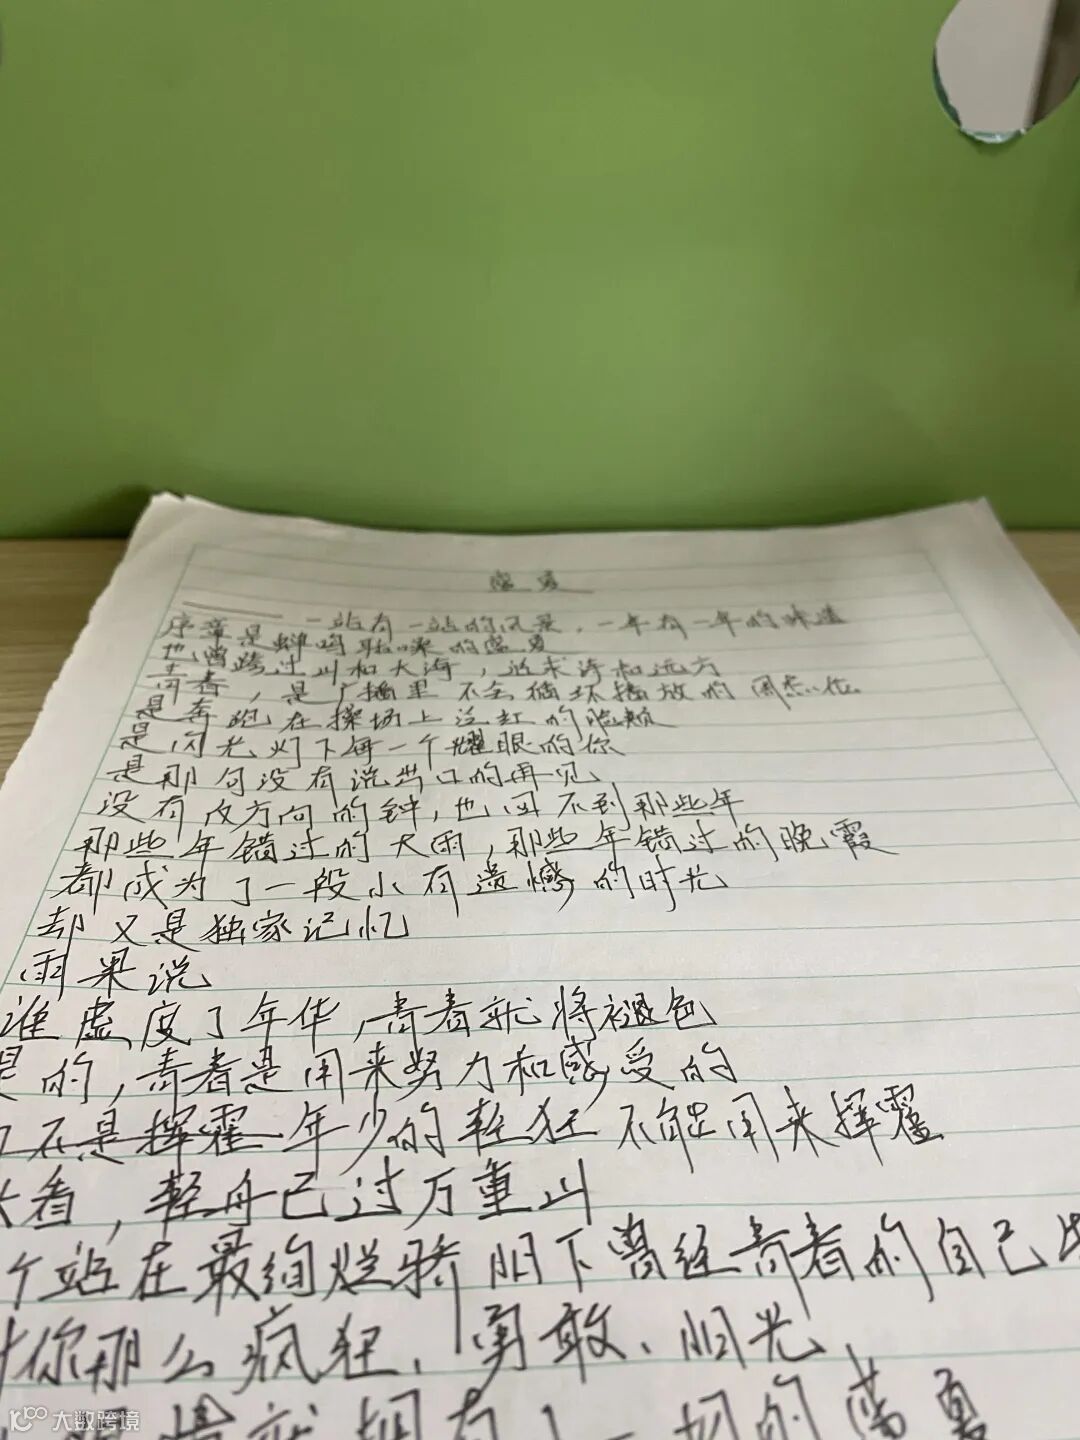 盛夏
一站有一站的风景，一年有一年的味道
序章是蝉鸣聒噪的盛夏
也曾跨过山和大海，追求诗和远方
青春，是广播里不会循环播放的周杰伦
是奔跑在操场上泛红的脸颊
是闪光灯下每一个耀眼的你
是那句没有说出口的再见
没有反方向的钟，也回不到那些年
那些年错过的大雨，那些年错过的晚霞
都成为了一段小有遗憾的时光
却又是独家记忆
雨果说
谁虚度了年华，青春就将褪色
是的，青春是用来努力和感受的
不是挥霍 年少的轻狂不能用来挥霍
看，轻舟已过万重山
个站在最绚烂骄阳下曾经青春的自己
你那么疯狂、勇敢、阳光
就拥有一切的盛夏
大数跨境